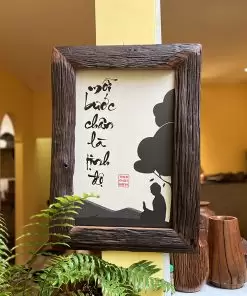 mỗi
bước
chân
là
tịnh
độ